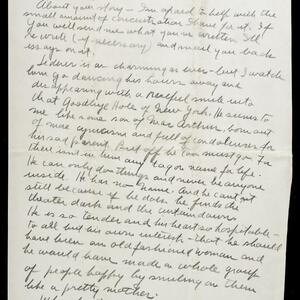 About your story — I'm afraid to help with the
small amount of concentration I have for it. If
you will send me what you've written I'll
re write (if necessary) and mail you back
essays on it.
is as charming as ever — but I watch
him go dancing his hours away and
disappearing with a rueful smile into
that Goodbye Hole of New York. He seems to
me like some son of Mac Arthur, born out
of mac cynicism and full of condolences for
his sad parent. But off he too must go. For
there isn't in him any tag or name for life.
He can only do things and never be anyone
inside. He has no Name. And he can't sit
still because if he does he finds the
theater dark and the curtain down
He is so tender and his heart so hospitable —
to all but his own interests — that he should
have been an old fashioned woman and
he would have made a whole group
of people happy by smiling on them
like a pretty mother.